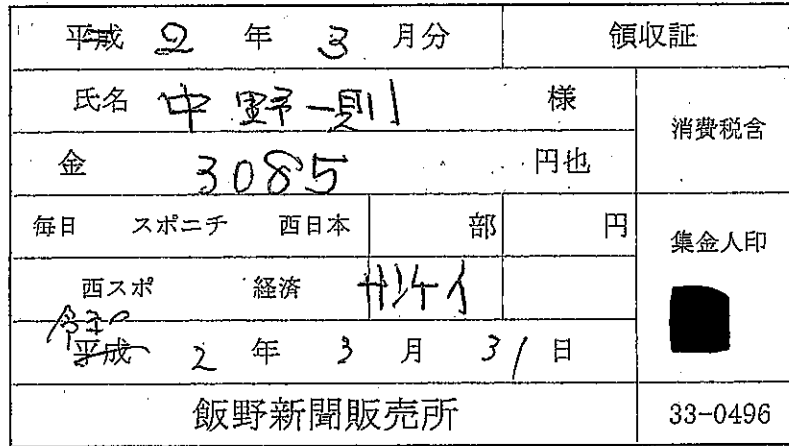 平成 2 年 3 月分 領収証
氏名 中野一則 様
消費税含
金 3085 円也
毎日 スポニチ 西日本 部 円
集金人印
西スポ 経済 サンケイ
令和
平成 2 年 3 月 31 日
飯野新聞販売所 33-0496